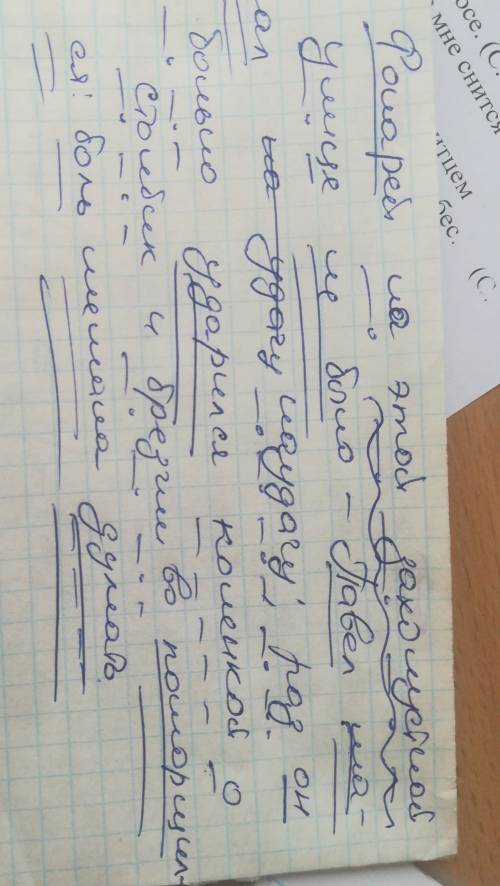 осе. (С.
мне снится
итцем
бес.
(С.
Фонарей на этой захолустной
улице не было – Павел ша-
ал на удачу наудачу. Раз он
больно ударился коленкой о
столбик и брезгливо поморщил-
ся: боль мешала думать.